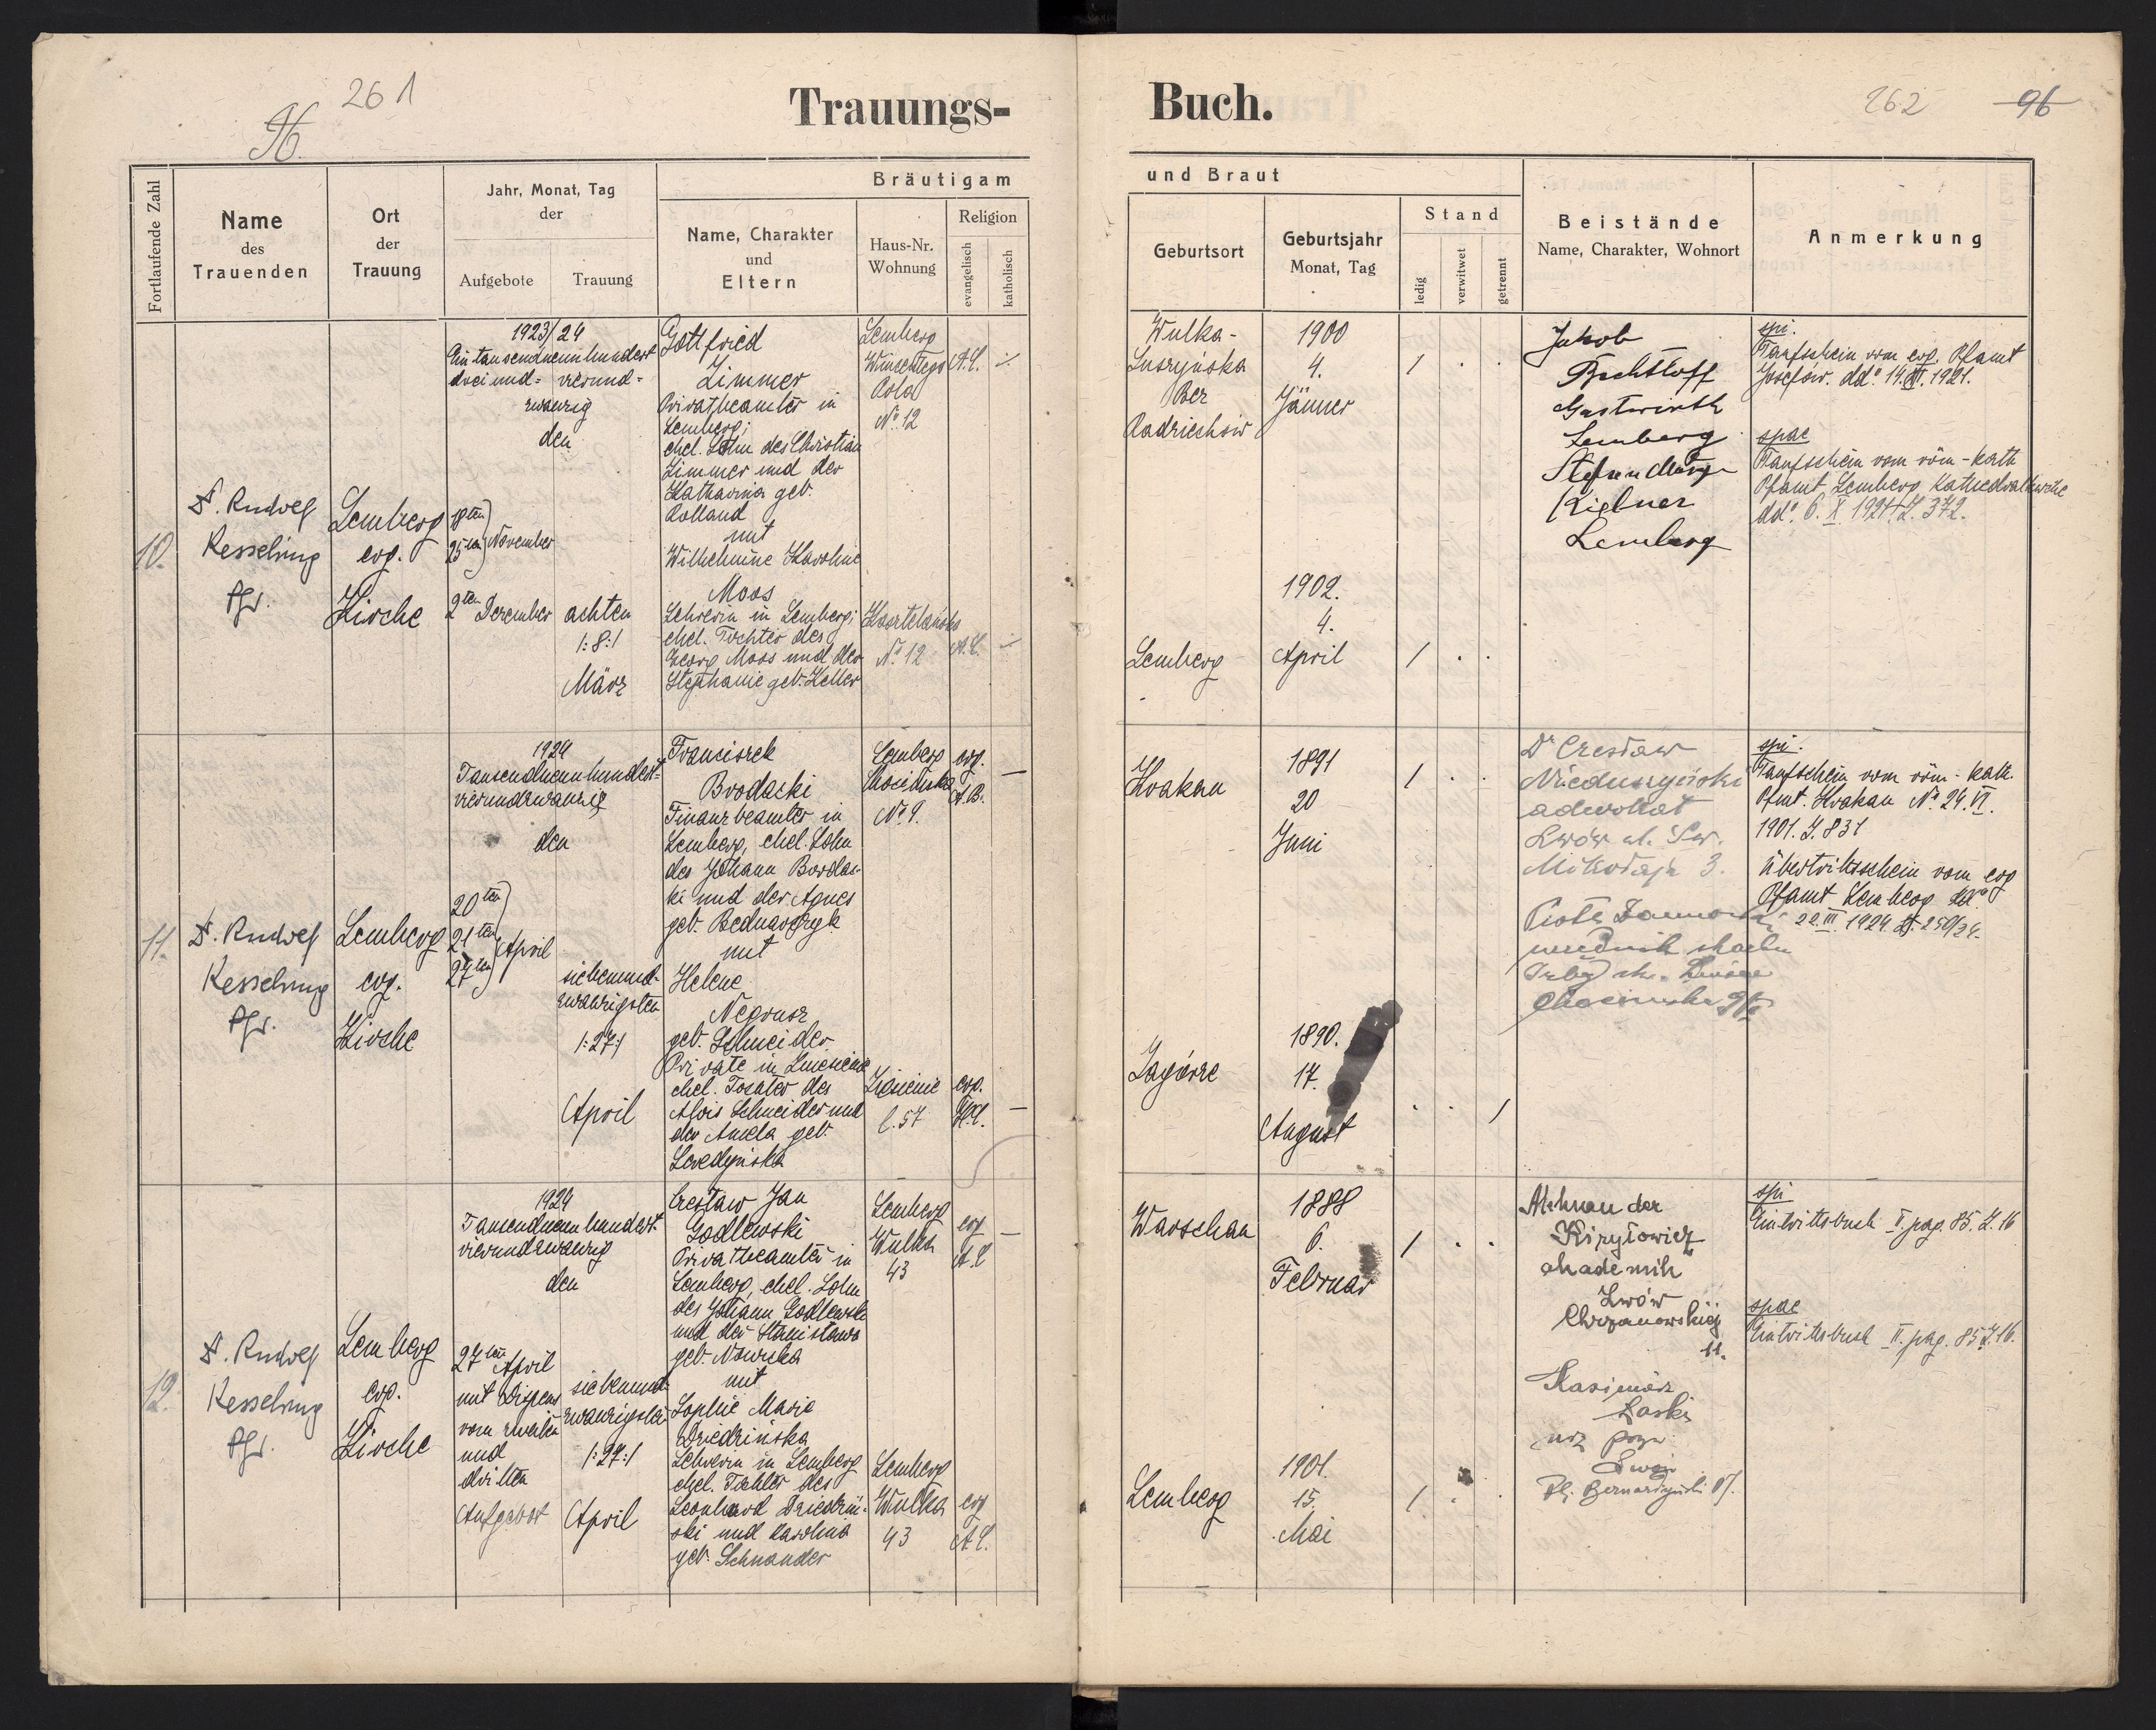 261
96.
Trauungs-
Fortlaufende Zahl
Name
des
Trauenden
Ort
der
Trauung
Jahr, Monat, Tag
der
Aufgebote
Trauung
Bräutigam
Name, Charakter
und
Eltern
Haus-Nr.
Wohnung
Religion
evangelisch
katholisch
10.
D. Rudolf
Kesselring
Pfr.
Lemberg
evg.
Kirche
1923/24
Eintausendneunhundert
dreiund- vierund-
zwanzig
den
18ten
25ten November
2ten Dezember
achten
/:8:/
März
Gottfried
Zimmer
Privatbeamter in
Lemberg;
ehel. Sohn des Christian
Zimmer und der
Katharina geb.
Rolland
mit
Wilhelmine Karoline
Moos
Lehrerin in Lemberg;
ehel. Tochter des
Georg Moos und der
Stephanie geb. Keller
Lemberg
Pola
No. 12
No. 12
11.
D. Rudolf
Kesselring
Pfr.
Lemberg
evg.
Kirche
1924
Tausendneunhundert-
vierundzwanzig
den
20ten
21ten April
27ten
siebenund-
zwanzigsten
/:27:/
April
Franciszek
Brodacki
Finanzbeamter in
Lemberg, ehel. Sohn
des Johann Brodac-
ki und der Agnes
geb. Bednarczyk
mit
Helene
geb. Schneider
Private in
ehel. Tochter des
Alois Schneider und
der Amela geb.
Lemberg
No. 9.
evg.
A.B.
l. 57
evg.
12.
D. Rudolf
Kesselring
Pfr.
Lemberg
evg.
Kirche
1924
Tausendneunhundert
vierundzwanzig
den
27ten April
mit Dispens
vom zweiten
und
dritten
Aufgebot
siebenund-
zwanzigsten
/:27:/
April
Czesław Jan
Godlewski
Privatbeamter in
Lemberg, ehel. Sohn
des Johann Godlewski
und der Stanisława
geb. Nowicka
mit
Sophie Marie
Dziedzińska
Lehrerin in Lemberg
ehel. Tochter des
Leonhard Dziedziń-
ski und Karolina
geb. Schnander
Lemberg
Wulka
43
evg
Lemberg
Wulka
43
evg
Buch.
262
96
und Braut
Geburtsort
Geburtsjahr
Monat, Tag
Stand
ledig
verwitwet
getrennt
Beistände
Name, Charakter, Wohnort
Anmerkung
Wulka-
Bez
1900
4.
Jänner
Lemberg
1902.
4.
April
Jakob
Bechtloff
Gastwirth
Lemberg
Lemberg
spi.
Taufschein vom evg. Pfamt
Josefów. ddo. 1921.
spae
Taufschein vom röm-kath
Pfamt Lemberg Kathedralkirche
ddo. 6. X. 1921 Z. 372.
Krakau
1891
20
Juni
Zagórze
1890.
17.
August
Dr Czesław
Nieduszyński
adwokat
Lwów ul. Św.
Mikołaja 3.
spi.
Taufschein vom röm-kath.
Pfmt. Krakau No. 24. VI.
1901. Z. 831
Übertrittsschein vom evg
Pfamt Lemberg ddo
22. III. 1924. Z. 250/24.
Warschau
1888
6.
Februar
Lemberg
1901.
15.
Mai
akademik
Lwów
Chrzanowskiej
11.
Kasimir
Łaski
Lwów
Pl. Bernardyński 17.
spi
Eintrittsbuch II. pag. 85. Z. 16
spae
Eintrittsbuch II. pag. 85 Z. 16.